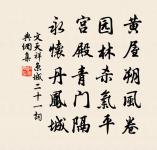 黄屋朔風卷
園林殺氣平
宮殿青門隔
永懷丹鳳城
文天祥京城二十一詞
典網集